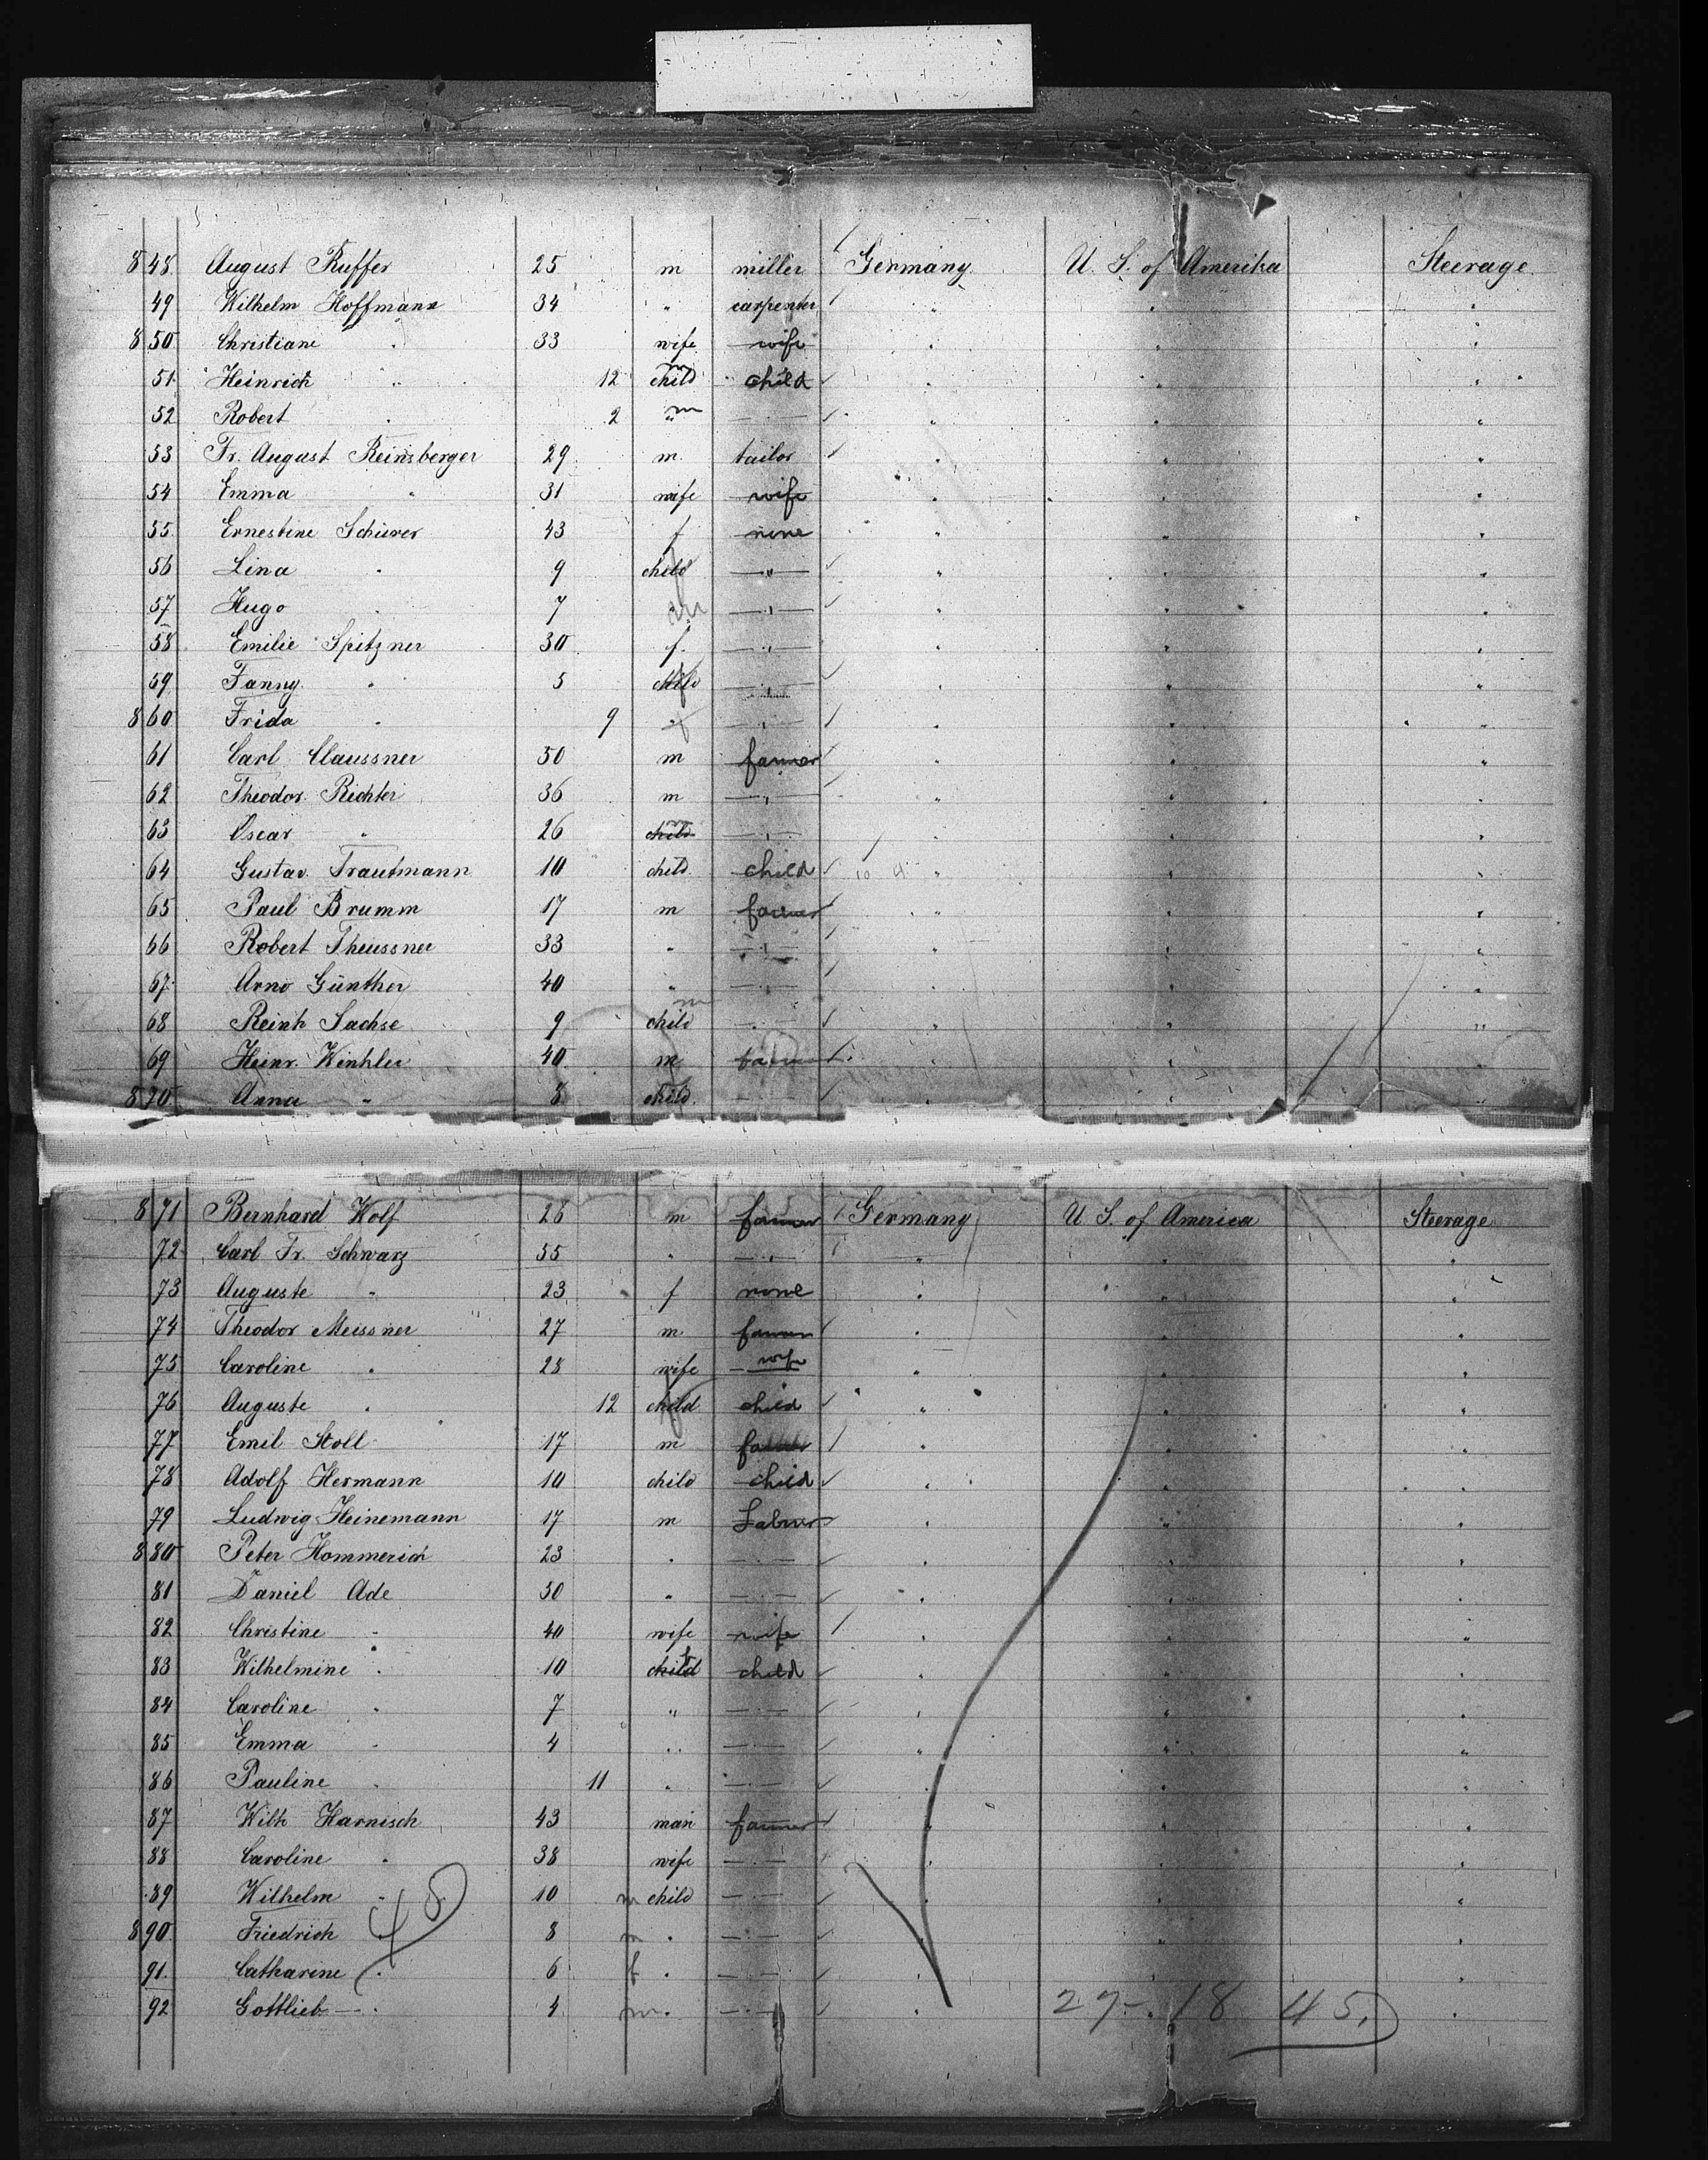 848 August Ruffer 25 m miller Germany U. S. of Amerika Steerage
49 Wilhelm Hoffmann 34 " carpenter " " "
850 Christiane " 33 wife wife " " "
51 Heinrich " 12 child child " " "
52 Robert " 2 " m " " " "
53 Fr. August Reinsberger 29 m tailor " " "
54 Emma " 31 wife wife " " "
55 Ernestine Schürer 43 f none " " "
56 Lina " 9 child " " " "
57 Hugo " 7 " " " "
58 Emilie Spitzner 30 f. " " " "
59 Fanny " 5 child " " " "
860 Frida " 9 " f " " " "
61 Carl Claussner 50 m farmer " " "
62 Theodor Richter 36 m " " " "
63 Oscar " 26 child m " " " "
64 Gustav Trautmann 10 child child " " "
65 Paul Brumm 17 m farmer " " "
66 Robert Theussner 33 " " " " "
67 Arno Günther 40 " " " " "
68 Reinh Sachse 9 child m " " " "
69 Heinr. Winkler 40 m farmer " " "
870 Anna " 8 child " " " "
871 Bernhard Wolf 26 m farmer Germany U S. of America Steerage
72 Carl Fr. Schwarz 55 " " " " "
73 Auguste " 23 f none " " "
74 Theodor Meissner 27 m farmer " " "
75 Caroline " 28 wife wife " " "
76 Auguste " 12 child f child " " "
77 Emil Stoll 17 m farmer " " "
78 Adolf Hermann 10 child child " " "
79 Ludwig Heinemann 17 m Labrer " " "
880 Peter Hommerich 23 " " " " "
81 Daniel Ade 50 " " " " "
82 Christine " 40 wife wife " " "
83 Wilhelmine " 10 child f child " " "
84 Caroline " 7 " " " " "
85 Emma " 4 " " " " "
86 Pauline " 11 " " " " "
87 Wilh Harnisch 43 man farmer " " "
88 Caroline " 38 wife " " " "
89 Wilhelm " 10 m child " " " "
890 Friedrich " 8 m " " " " "
91 Catharine " 6 f " " " " "
92 Gottlieb " 4 m " " " " "
27 - 18 45.